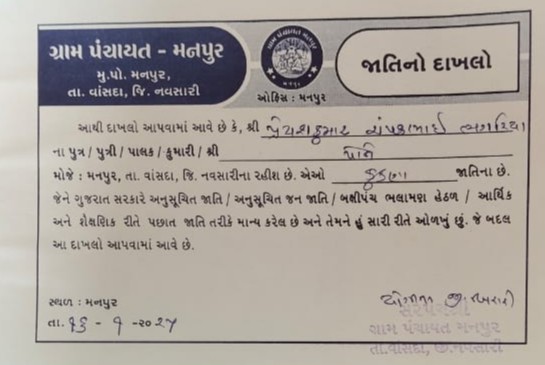 ગ્રામ પંચાયત - મનપુર
મુ.પો. મનપુર,
તા. વાંસદા, જિ. નવસારી
ઓફિસ : મનપુર
જાતિનો દાખલો
આથી દાખલો આપવામાં આવે છે કે, શ્રી
ના પુત્ર / પુત્રી / પાલક / કુમારી / શ્રી પોતે
મોજે : મનપુર, તા. વાંસદા, જિ. નવસારીના રહીશ છે. એઓ કુકણા જાતિના છે.
જેને ગુજરાત સરકારે અનુસૂચિત જાતિ / અનુસૂચિત જન જાતિ / બક્ષીપંચ ભલામણ હેઠળ / આર્થિક
અને શૈક્ષણિક રીતે પછાત જાતિ તરીકે માન્ય કરેલ છે અને તેમને હું સારી રીતે ઓળખું છું. જે બદલ
આ દાખલો આપવામાં આવે છે.
સ્થળ : મનપુર
તા.
સરપંચશ્રી
ગ્રામ પંચાયત મનપુર
તા.વાંસદા, જી.નવસારી